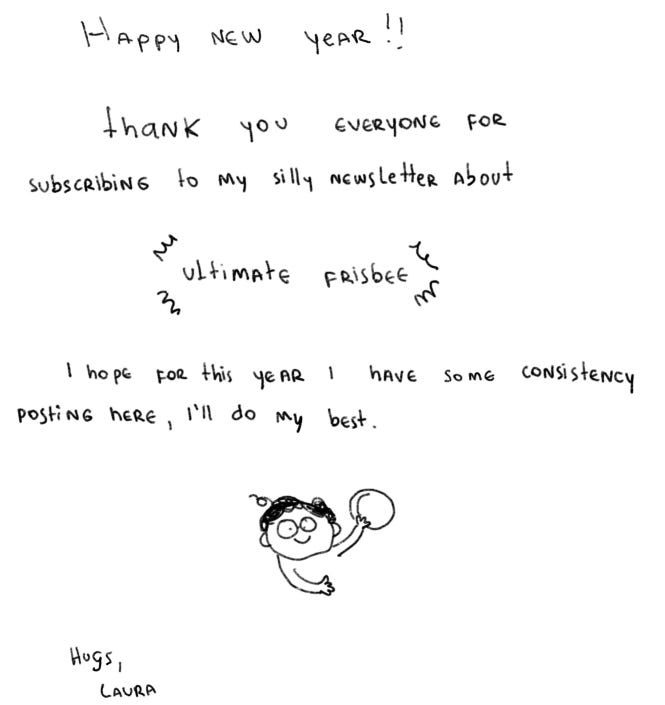 Happy New Year!!
Thank you everyone for
subscribing to my silly newsletter about
Ultimate Frisbee
I hope for this year I have some consistency
posting here, I'll do my best.
Hugs,
Laura